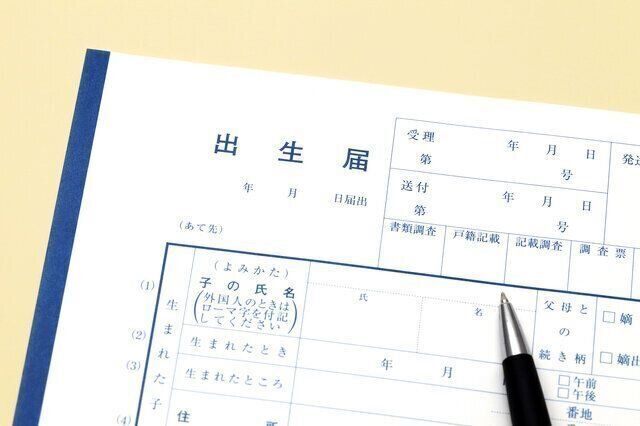 出生届
年 月 日届出
(あて先)
受理 年 月 日
第 号
送付 年 月 日
第 号
発送
書類調査 戸籍記載 記載調査 調査票
(1) (よみかた)
子の氏名 氏 名
(外国人のときは
ローマ字を付記
してください)
父母と
の
続き柄
□嫡
□嫡出
生まれた子
(2) 生まれたとき 年 月
□午前
□午後
(3) 生まれたところ 番地
(4) 住所